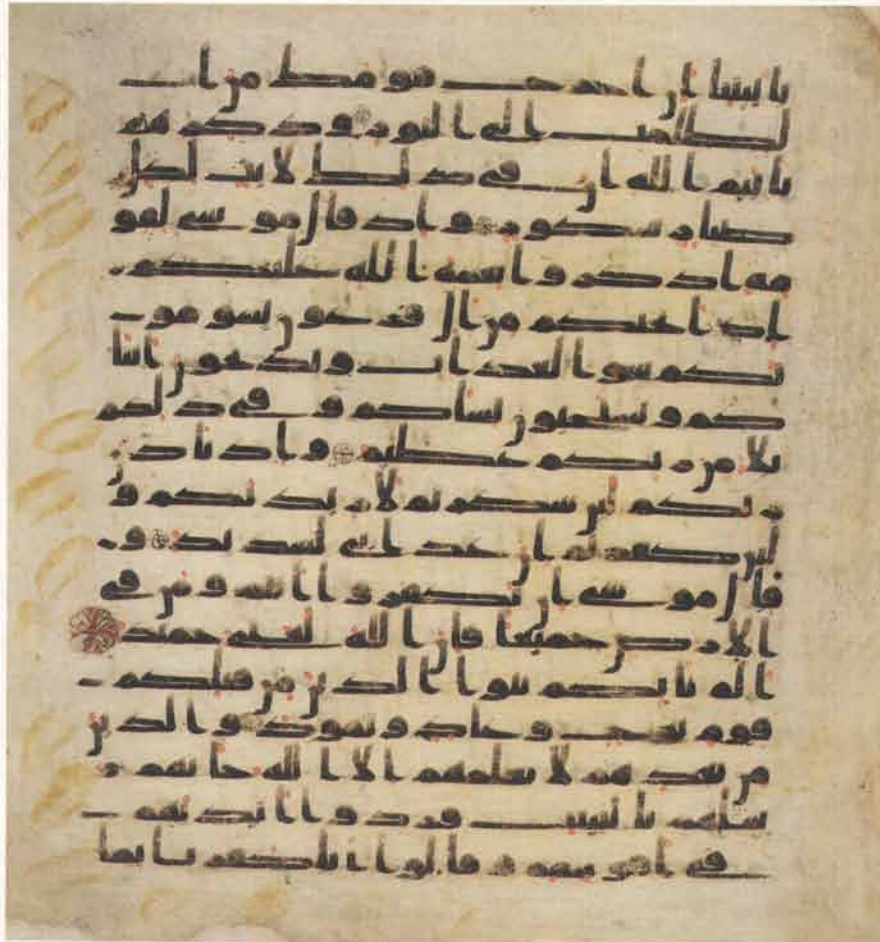 بايتنا ان اخرج قومك من ا
لظلمت الى النور وذكرهم
باييم الله ان في ذلك لايت لكل
صبار شكور واذ قال موسى لقو
مه اذكروا نعمة الله عليكم
اذ انجيكم من ال فرعون يسومو
نكم سوا العذاب ويذبحون ابنا
كم ويستحيون نساكم وفي ذلكم
بلا من ربكم عظيم واذ تاذن
ربكم لئن شكرتم لازيدنكم و
لئن كفرتم ان عذابي لشديد و
قال موسى ان تكفروا انتم ومن في
الارض جميعا فان الله لغني حميد
الم ياتكم نبوا الذين من قبلكم
قوم نوح وعاد وثمود والذين
من بعدهم لا يعلمهم الا الله جاتهم ر
سلهم بالبينت فردوا ايديهم
في افوههم وقالوا انا كفرنا بما